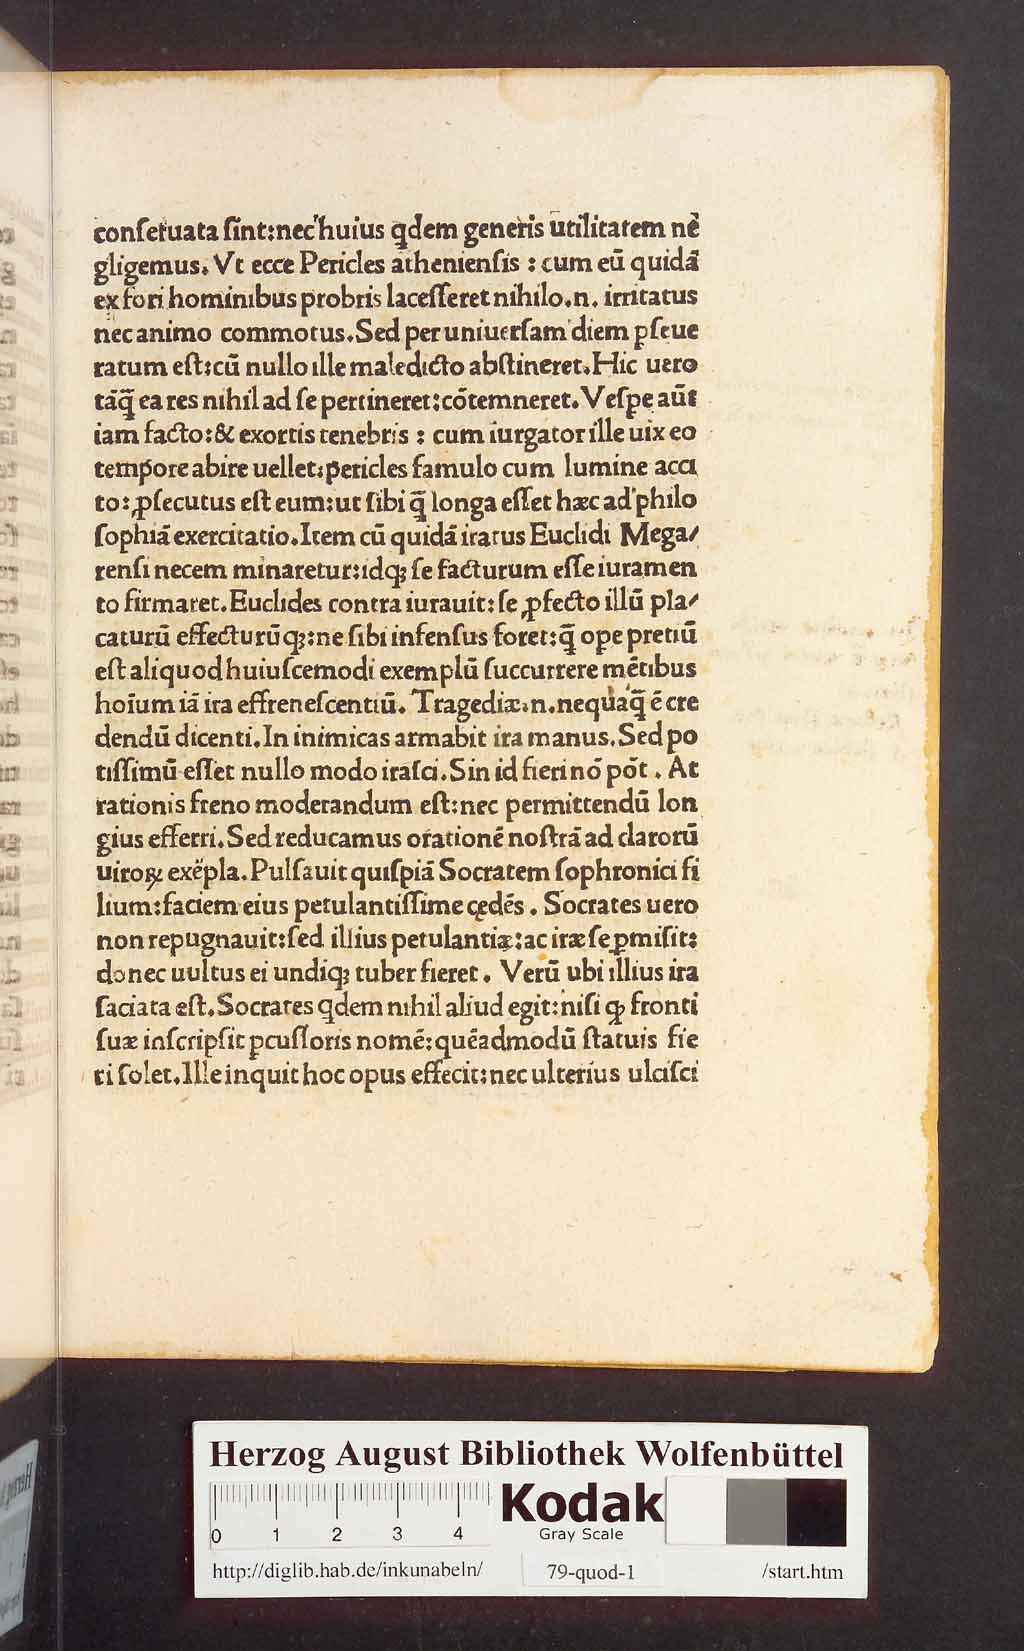 conſeruata ſint:nec huius q̈dem generis utilitatem ne
gligemus. Vt ecce Pericles athenienſis : cum eū quidā
ex fori hominibus probris laceſſeret nihilo.n. irritatus
nec animo commotus. Sed per uniuerſam diem ꝑſeue
ratum eſt:cū nullo ille maledicto abſtineret. Hic uero
tāq̄ ea res nihil ad ſe pertineret:cōtemneret. Veſpe aūt
iam facto:& exortis tenebris : cum iurgator ille uix eo
tempore abire uellet:pericles famulo cum lumine acci
to:ꝓſecutus eſt eum:ut ſibi q̄ longa eſſet hæc ad philo
ſophiā exercitatio. Item cū quidā iratus Euclidi Mega/
renſi necem minaretur:idqꝫ ſe facturum eſſe iuramen
to firmaret. Euclides contra iurauit: ſe ꝓfecto illū pla/
caturū effecturūqꝫ:ne ſibi infenſus foret:q̄ ope pretiū
eſt aliquod huiuſcemodi exemplū ſuccurrere mētibus
hoīum iā ira effreneſcentiū. Tragediæ.n.nequāq̄ ē cre
dendū dicenti. In inimicas armabit ira manus. Sed po
tiſſimū eſſet nullo modo iraſci. Sin id fieri nō pōt . At
rationis freno moderandum eſt:nec permittendū lon
gius efferri. Sed reducamus orationē noſtrā ad clarorū
uiroꝝ exēpla. Pulſauit quiſpiā Socratem ſophronici fi
lium:faciem eius petulantiſſime cędēs . Socrates uero
non repugnauit:ſed illius petulantiæ:ac iræ ſe ꝑmiſit:
donec uultus ei undiqꝫ tuber fieret . Verū ubi illius ira
ſaciata eſt. Socrates q̈dem nihil aliud egit:niſi ꝙ fronti
ſuæ inſcripſit ꝑcuſſoris nomē:quēadmodū ſtatuis fie
ri ſolet. Ille inquit hoc opus effecit:nec ulterius ulciſci
Herzog August Bibliothek Wolfenbüttel
0 1 2 3 4
Kodak
Gray Scale
http://diglib.hab.de/inkunabeln/ 79-quod-1 /start.htm